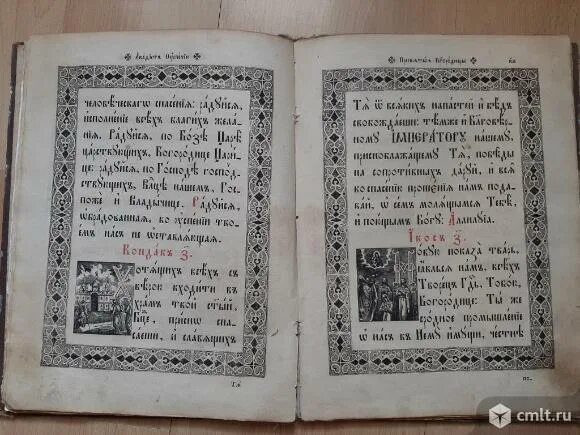 ✤ Акаѳістъ Оуспенїю ✤
человѣческагѡ спасенїѧ: радꙋйсѧ,
исполненїе всѣхъ благихъ жела-
нїй. Радꙋйсѧ, по Бозѣ Царе
царствꙋющихъ, Богородице Цари-
це: радꙋйсѧ, по Господѣ господ-
ствꙋющихъ, нашемъ, Гос-
поже и Владычице. Радꙋйсѧ,
ѡбрадованнаѧ, во оуспенїи тво-
емъ насъ не ѡставлѧющаѧ.
Кондакъ з҃.
Хотѧщихъ всѣхъ съ
вѣрою входити въ
храмъ твой ст҃ый,
Бц҃е, присно спа-
сенїи, и славѧщихъ
Тѧ
✤ Прест҃ыѧ Богородицы ✤
Тѧ ѿ всѧкихъ напастей и бѣдъ
свобождаеши: тѣмже и благовѣр-
номꙋ ІМПЕРАТОРꙊ нашемꙋ,
приснобла­жащемꙋ Тѧ, побѣды
на сопротивныхъ дарꙋй, и всѧ
ко спасенїю прошенїѧ намъ пода-
вай, ѡ семъ молѧщимсѧ Тебѣ,
и поющымъ Богꙋ: Аллилꙋїа.
Ікосъ з҃.
Новꙋю показа тварь,
ꙗвльсѧ намъ, всѣхъ
Творецъ Гд҃ь, Тобою,
Богородице: Ты же
сродное промышленїе
ѡ насъ къ Немꙋ имꙋщи, честнѣ
по-
cmlt.ru